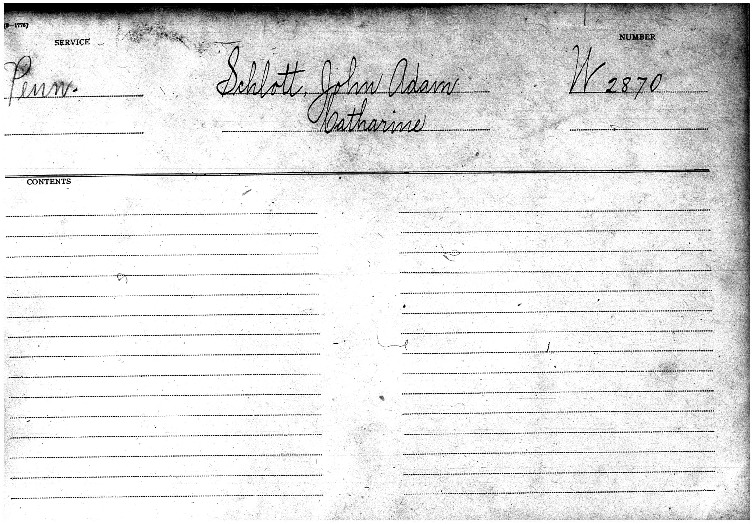 (3—1776)
SERVICE
NUMBER
Penn.
Schlott, John Adam
W 2870
Catharine
CONTENTS